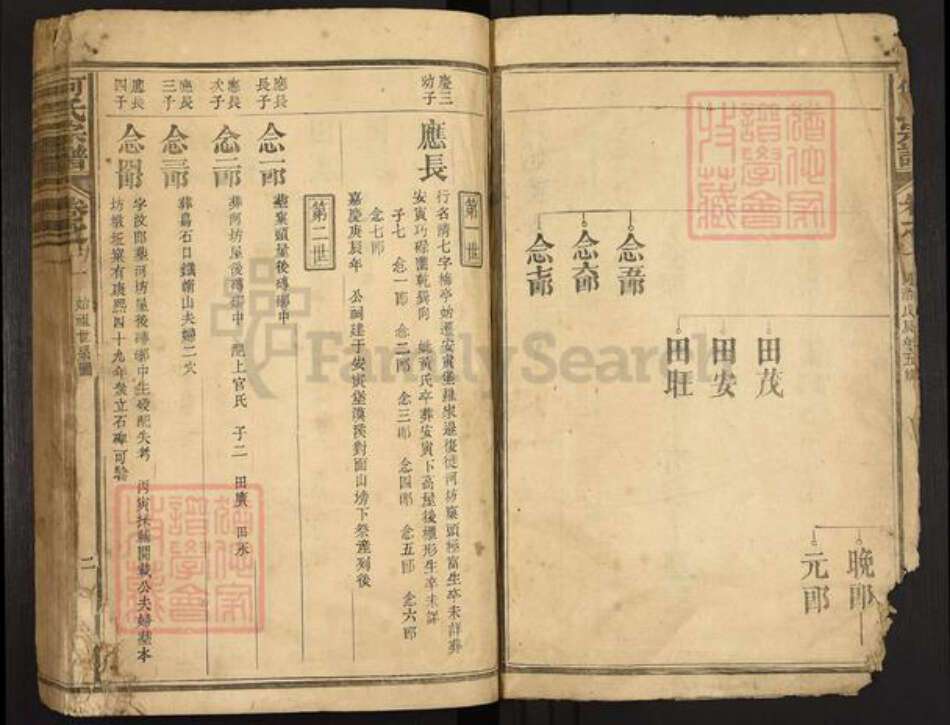 念五郎
念六郎
念七郎
田茂
田安
田旺
晚郎
元郎
慶三幼子
應長
第一世
行名清七字梅亭始遷安寅堡羅家邊復徙河坊窠頭極富生卒未詳葬
安寅巧碌墘乾巽向 妣黃氏卒葬安寅下高屋後櫃形生卒未詳
子七 念一郎 念二郎 念三郎 念四郎 念五郎 念六郎
念七郎
嘉慶庚辰年 公祠建于安寅堡漠溪對面山塝下祭產列後
第二世
應長長子
念一郎
葬窠頭屋後磚槨中
應長次子
念二郎
葬河坊屋後磚槨中 配上官氏 子二 田廣 田永
應長三子
念三郎
葬烏石口鐵嶺山夫婦二穴
應長四子
念四郎
字改郎葬河坊屋後磚槨中生歿配失考 丙寅抹稿開載公夫婦墓本
坊墩坵窠有康熙四十九年衆立石碑可驗
何氏宗譜
始祖世系圖
二
FamilySearch